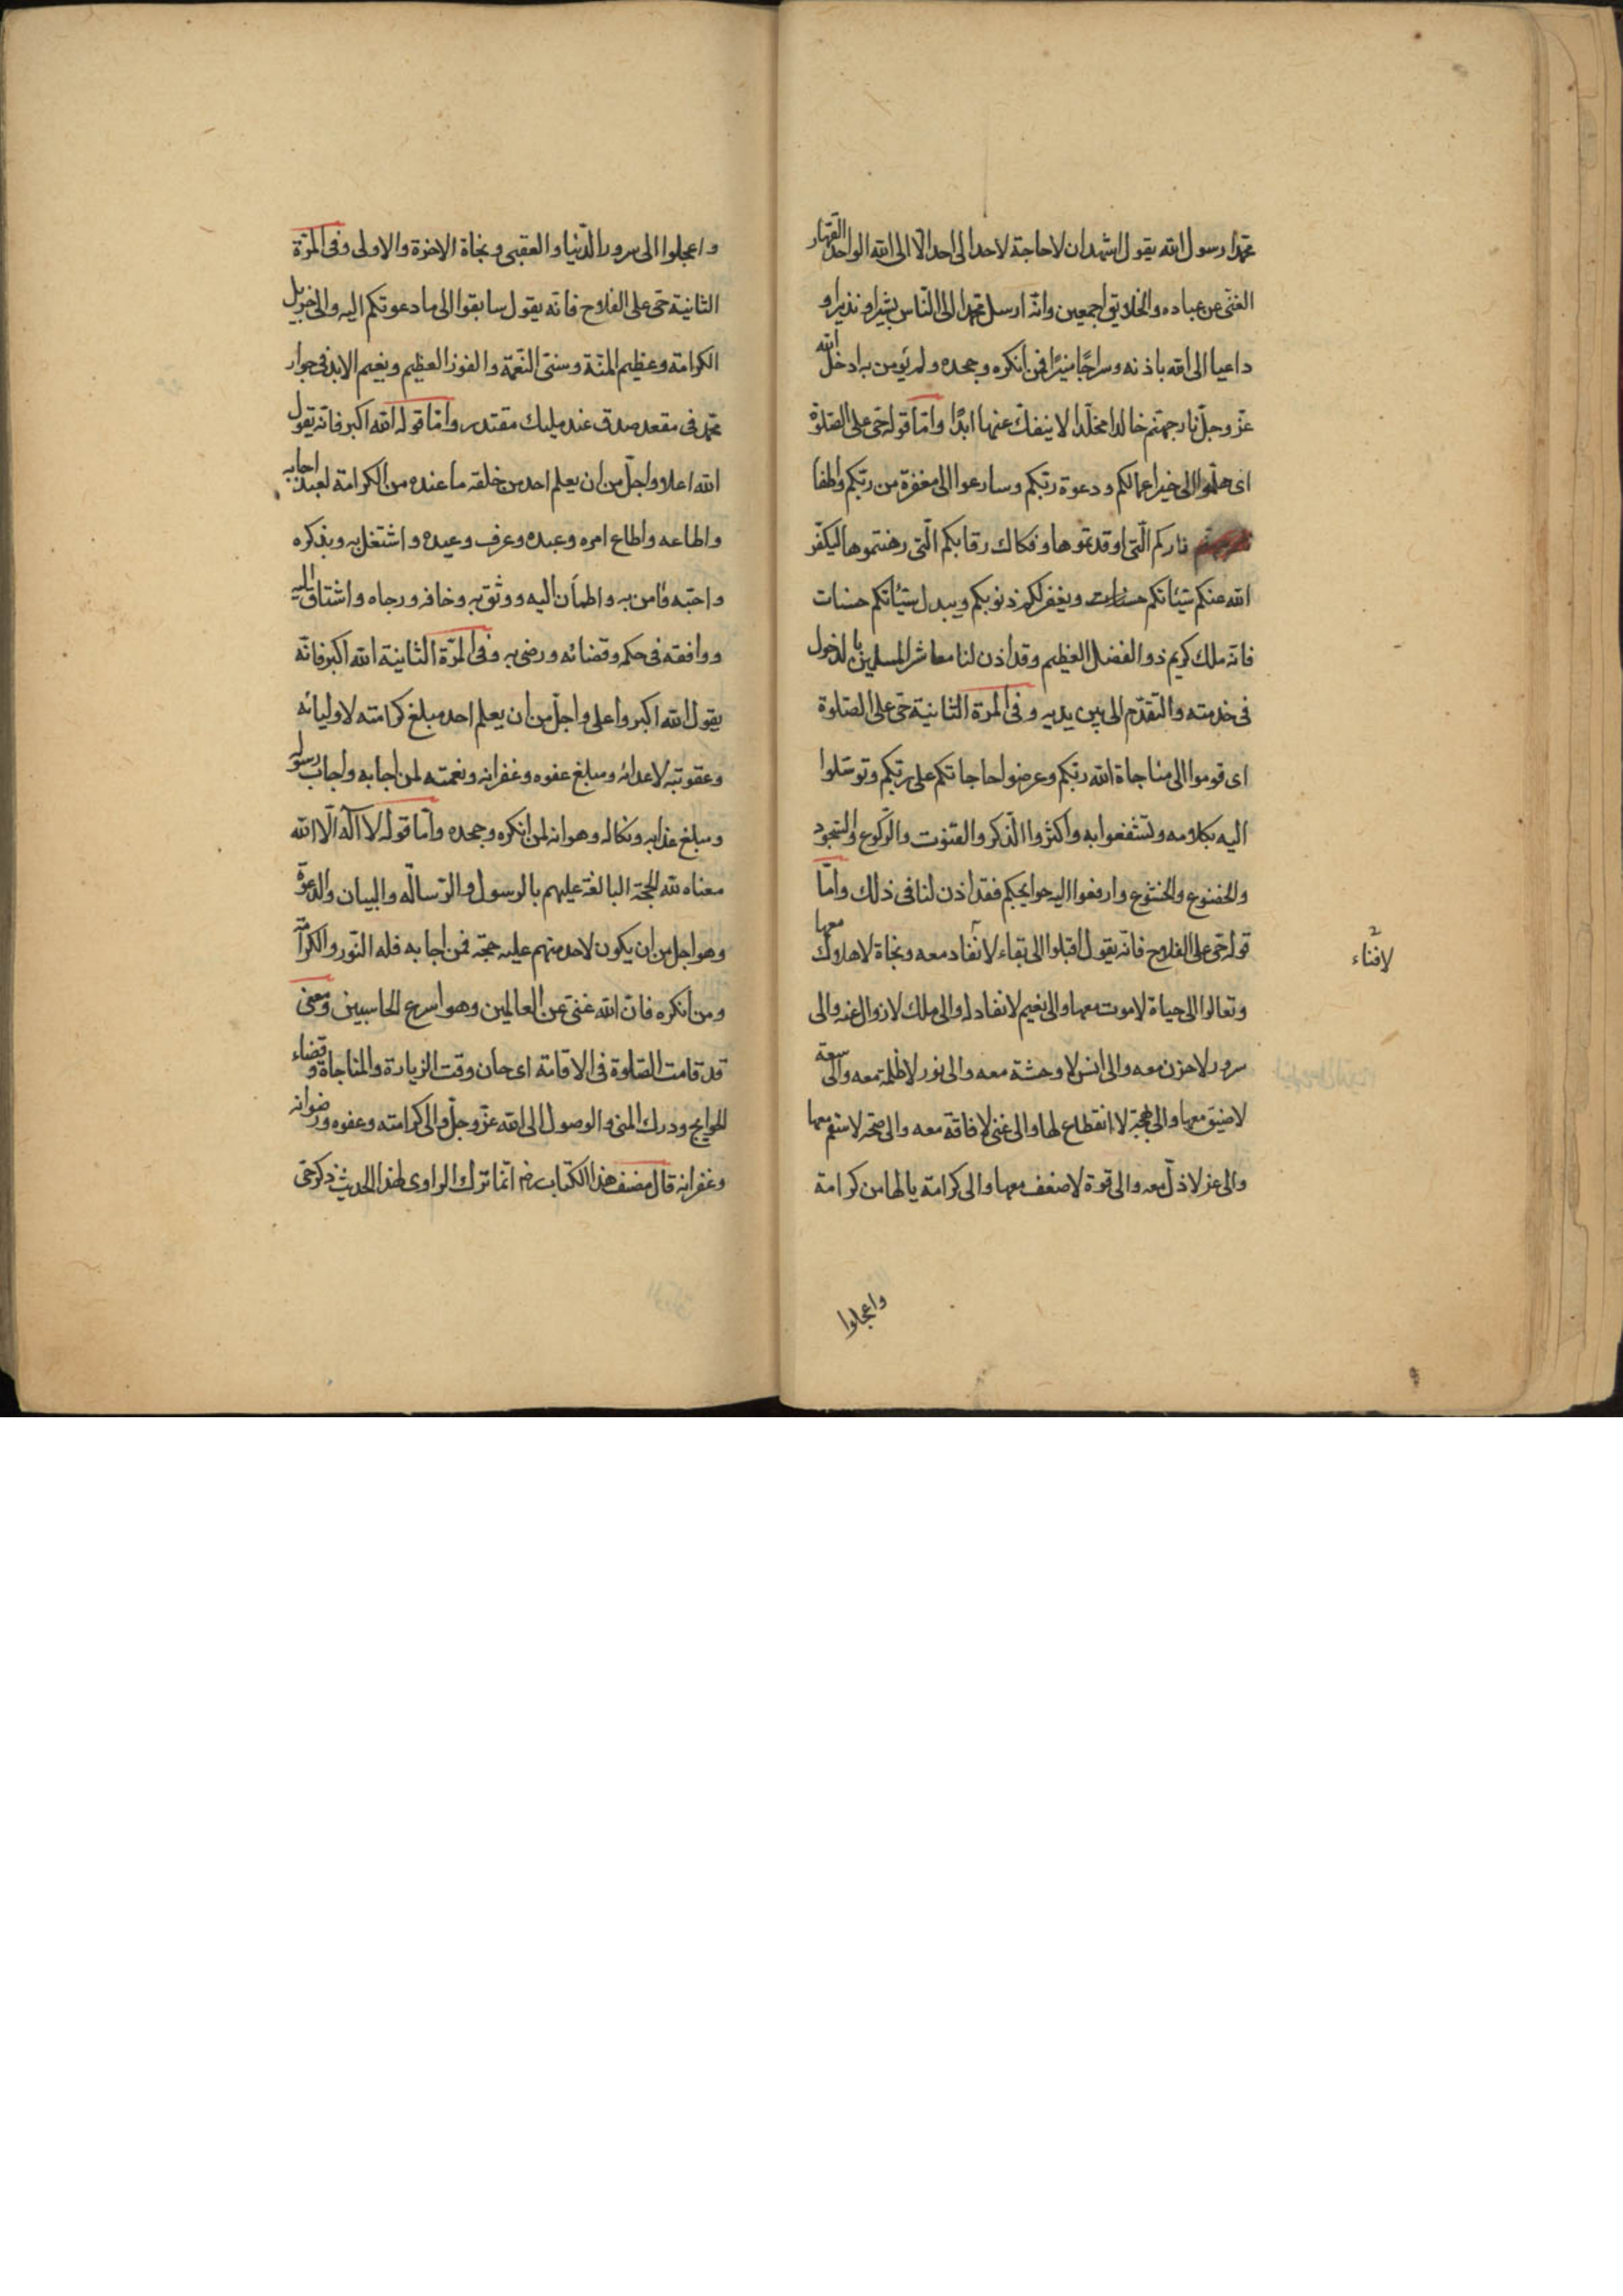 محمدا رسول الله يقول اشهد ان لا حاجة لاحد الى احد الا الى الله الواحد القهار
الغنى عن عباده والخلايق اجمعين وانه ارسل محمدا الى الناس بشيرا ونذيرا و
داعيا الى الله باذنه وسراجا منيرا فمن انكره وجحده ولم يؤمن به ادخله الله
عز وجل نار جهنم خالدا مخلدا لا ينفك عنها ابدا واما قوله حى على الصلوة
اى هلموا الى خير اعمالكم ودعوة ربكم وسارعوا الى مغفرة من ربكم واطفا
ناركم التى اوقدتموها وفكاك رقابكم التى رهنتموها ليكفر
الله عنكم سيئاتكم ويغفر لكم ذنوبكم ويبدل سيئاتكم حسنات
فانه ملك كريم ذو الفضل العظيم وقد اذن لنا معاشر المسلمين بالدخول
فى خدمته والتقدم الى بين يديه وفى المرة الثانية حى على الصلوة
اى قوموا الى مناجاة الله ربكم وعرضوا حاجاتكم على ربكم وتوسلوا
اليه بكلامه وتشفعوا به واكثروا الذكر والقنوت والركوع والسجود
والخضوع والخشوع وارفعوا اليه حوايجكم فقد اذن لنا فى ذلك واما
قوله حى على الفلاح فانه يقول اقبلوا الى بقاء لا نفاد معه ونجاة لا هلاك معها
لا فناء
وتعالوا الى حياة لا موت معها والى نعيم لا نفاد له والى ملك لا زوال عنه والى
سرور لا حزن معه والى انس لا وحشة معه والى نور لا ظلمة معه والى سعة
لا ضيق معها والى بهجة لا انقطاع لها والى غنى لا فاقة معه والى صحة لا سقم معها
والى عز لا ذل معه والى قوة لا ضعف معها والى كرامة يا لها من كرامة
واعجلوا
واعجلوا الى سرور الدنيا والعقبى ونجاة الاخرة والاولى وفى المرة
الثانية حى على الفلاح فانه يقول سابقوا الى ما دعوتكم اليه والى جزيل
الكرامة وعظيم المنة وسنى النعمة والفوز العظيم ونعيم الابد فى جوار
محمد فى مقعد صدق عند مليك مقتدر واما قوله الله اكبر فانه يقول
الله اعلا واجل من ان يعلم احد من خلقه ما عنده من الكرامة لعبد اجابه
واطاعه واطاع امره وعبده وعرف وعيده واشتغل به وبذكره
واحبه وامن به واطمأن اليه ووثق به وخافه ورجاه واشتاق اليه
ووافقه فى حكمه وقضائه ورضى به وفى المرة الثانية الله اكبر فانه
يقول الله اكبر واعلى واجل من ان يعلم احد مبلغ كرامته لاوليائه
وعقوبته لاعدائه ومبلغ عفوه وغفرانه ونعمته لمن اجابه واجاب رسوله
ومبلغ عذابه ونكاله وهوانه لمن انكره وجحده واما قوله لا اله الا الله
معناه لله الحجة البالغة عليهم بالرسول والرسالة والبيان والدعوة
وهو اجل من ان يكون لاحد منهم عليه حجة فمن اجابه فله النور والكرامة
ومن انكره فان الله غنى عن العالمين وهو اسرع الحاسبين ومعنى
قد قامت الصلوة فى الاقامة اى حان وقت الزيارة والمناجاة وقضاء
الحوايج ودرك المنى والوصول الى الله عز وجل والى كرامته وعفوه ورضوانه
وغفرانه قال مصنف هذا الكتاب رضه انما ترك الراوى لهذا الحديث ذكر حى